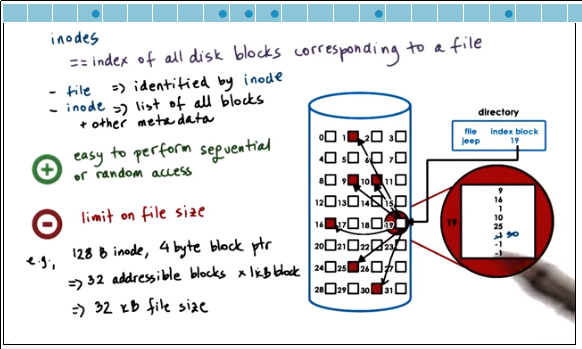 inodes
== index of all disk blocks corresponding to a file
- file => identified by inode
- inode => list of all blocks
+ other metadata
+ easy to perform sequential
or random access
- limit on file size
e.g., 128 B inode, 4 byte block ptr
=> 32 addressible blocks x 1kB block
=> 32 kB file size
0 1 2 3
4 5 6 7
8 9 10 11
12 13 14 15
16 17 18 19
20 21 22 23
24 25 26 27
28 29 30 31
directory
file index block
jeep 19
19
9
16
1
10
25
-1 30
-1
-1